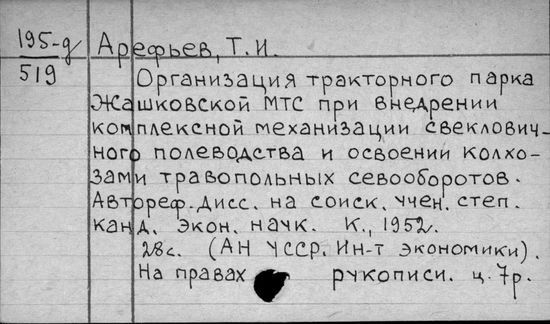 195-д Арефьев, Т. И.
519
Организация тракторного парка
Жашковской МТС при внедрении
комплексной механизации свеклович-
ного полеводства и освоении колхо-
зами травопольных севооборотов.
Автореф. дисс. на соиск. учен. степ.
канд. экон. наук. К., 1952.
28 с. (АН УССР. Ин-т экономики).
На правах рукописи. ц. 7р.